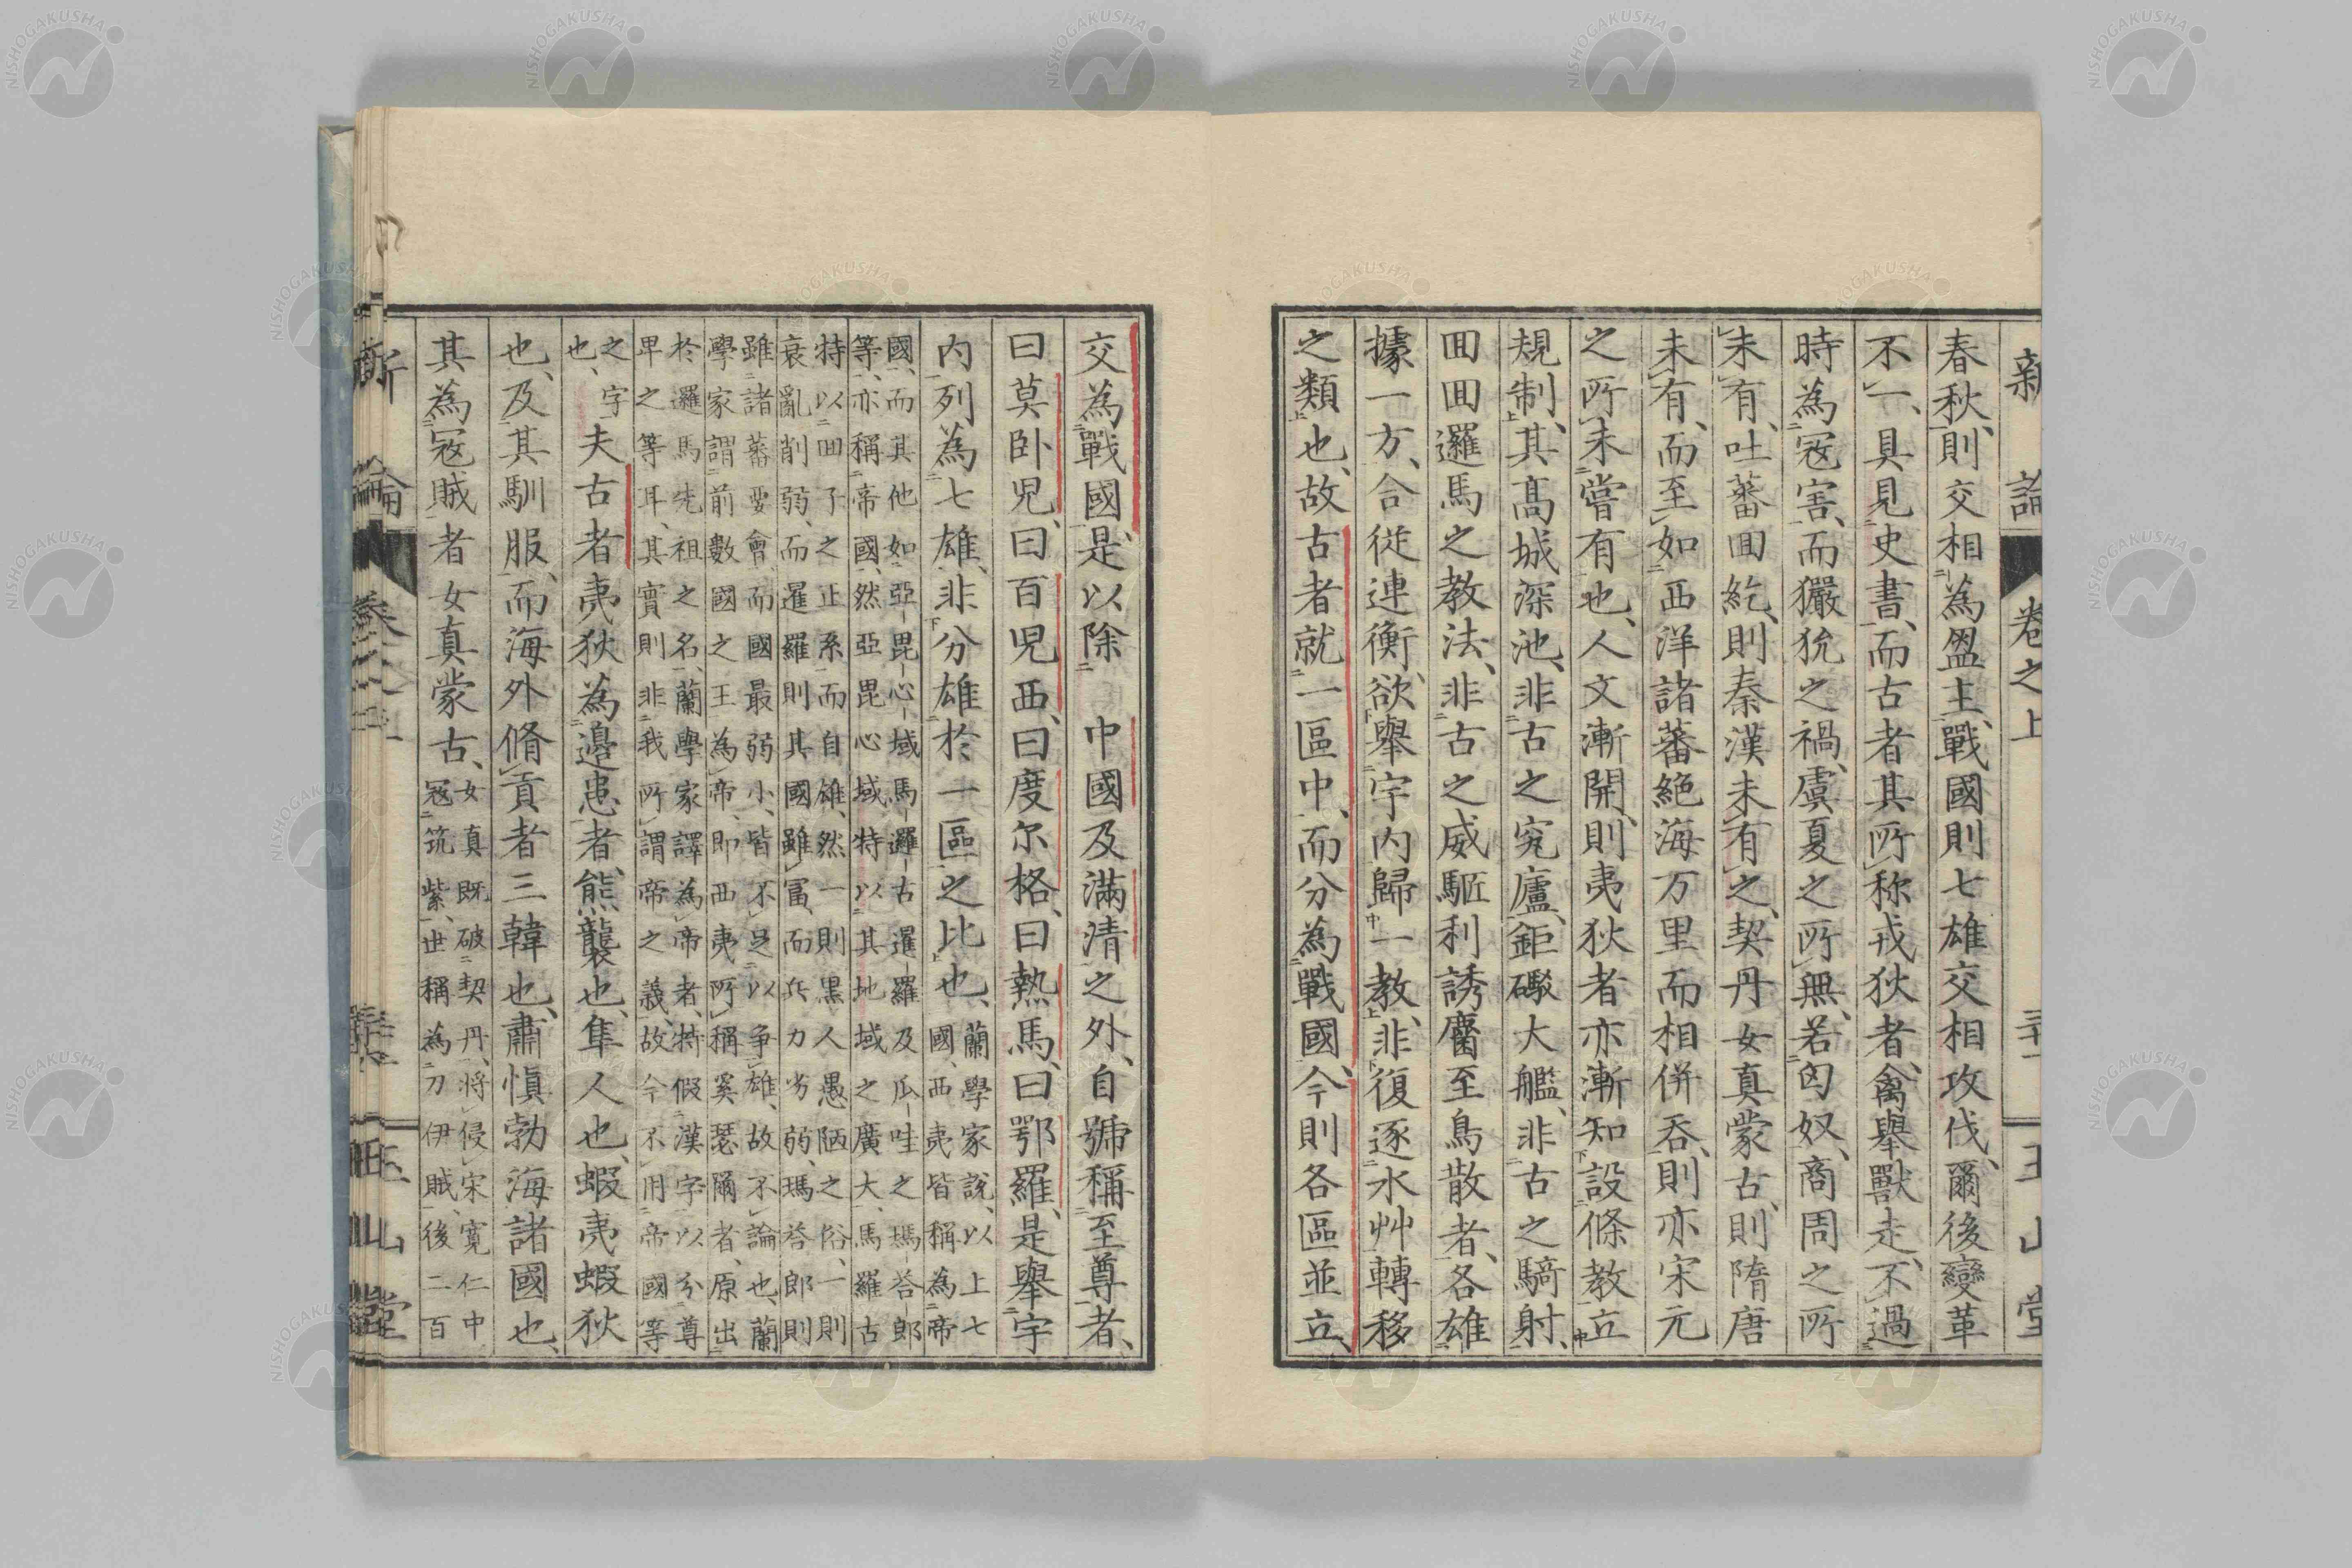 新論 卷之上 玉山堂
春秋、則交相為盟主、戰國則七雄交相攻伐、爾後變革
不一、具見史書、而古者其所称戎狄者、禽舉獸走、不過
時為寇害、而玁狁之禍、虞夏之所無、若匈奴、商周之所
未有、吐蕃回紇、則秦漢未有之、契丹女真蒙古、則隋唐
未有、而至如西洋諸蕃絶海万里而相併吞、則亦宋元
之所未嘗有也、人文漸開、則夷狄者亦漸知設條教立
規制、其高城深池、非古之穹廬、鉅礮大艦、非古之騎射、
回回邏馬之教法、非古之威駆利誘麕至鳥散者、各雄
據一方、合従連衡、欲舉宇内歸一教、非復逐水艸轉移
之類也、故古者就一區中、而分為戰國、今則各區並立、
交為戰國、是以除 中國及滿清之外、自號稱至尊者、
曰莫臥児、曰百児西、曰度尔格、曰熱馬、曰鄂羅、是舉宇
内、列為七雄、非分雄於一區之比也、
蘭學家説、以上七
國、西夷皆稱為帝
國、而其他如亞毘心域馬邏古暹羅及瓜哇之瑪荅郎
等、亦稱帝國、然亞毘心域特以其地域之廣大、馬羅古
特以回子之正系、而自雄、然一則黒人愚陋之俗、一則
衰亂削弱、而暹羅則其國雖富、而兵力劣弱、瑪荅郎則
雖諸蕃要會、而國最弱小、皆不足以争雄、故不論也、蘭
學家謂前數國之王為帝、即西夷所稱奚瑟爾者、原出
於邏馬先祖之名、蘭學家譯為帝者、特假漢字以分尊
卑之等耳、其實則非我所謂帝之義、故今不用帝國等
之字
也、
夫古者夷狄為邊患者、熊襲也、隼人也、蝦夷蝦狄
也、及其馴服、而海外脩貢者三韓也、肅慎勃海諸國也、
其為寇賊者女真蒙古、
女真既破契丹、将侵宋寛仁中
寇筑紫、世稱為刀伊賊、後二百
新論 玉山堂